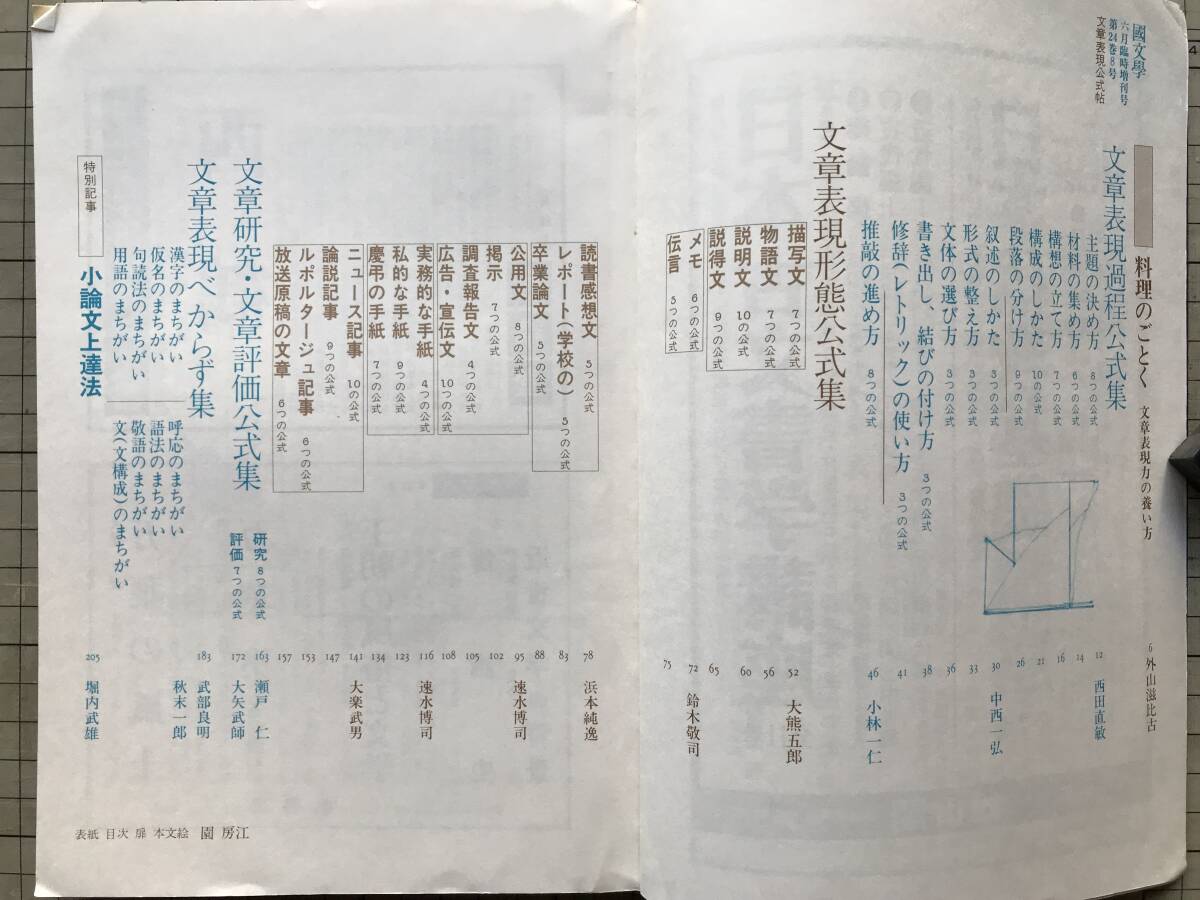 國文學
六月臨時増刊号
第24巻8号
文章表現公式帖
料理のごとく 文章表現力の養い方 6 外山滋比古
文章表現過程公式集
主題の決め方 8つの公式 12 西田直敏
材料の集め方 6つの公式 14
構想の立て方 7つの公式 16
構成のしかた 10の公式 21
段落の分け方 9つの公式 26
叙述のしかた 3つの公式 30 中西一弘
形式の整え方 3つの公式 33
文体の選び方 3つの公式 36
書き出し、結びの付け方 3つの公式 38
修辞(レトリック)の使い方 3つの公式 41
推敲の進め方 8つの公式 46 小林一仁
文章表現形態公式集
描写文 7つの公式 52 大熊五郎
物語文 7つの公式 56
説明文 10の公式 60
説得文 9つの公式 65
メモ 6つの公式 72 鈴木敬司
伝言 5つの公式 75
読書感想文 5つの公式 78 浜本純逸
レポート(学校の) 5つの公式 83
卒業論文 5つの公式 88
公用文 8つの公式 95 速水博司
掲示 7つの公式 102
調査報告文 4つの公式 105
広告・宣伝文 10の公式 108
実務的な手紙 4つの公式 116 速水博司
私的な手紙 9つの公式 123
慶弔の手紙 7つの公式 134
ニュース記事 10の公式 141 大楽武男
論説記事 9つの公式 147
ルポルタージュ記事 6つの公式 153
放送原稿の文章 6つの公式 157
文章研究・文章評価公式集
研究 8つの公式 163 瀬戸仁
評価 7つの公式 172 大矢武師
文章表現べからず集 183 武部良明
秋末一郎
漢字のまちがい
仮名のまちがい
句読法のまちがい
用語のまちがい
呼応のまちがい
語法のまちがい
敬語のまちがい
文(文構成)のまちがい
特別記事
小論文上達法 205 堀内武雄
表紙 目次 扉 本文絵 園 房江